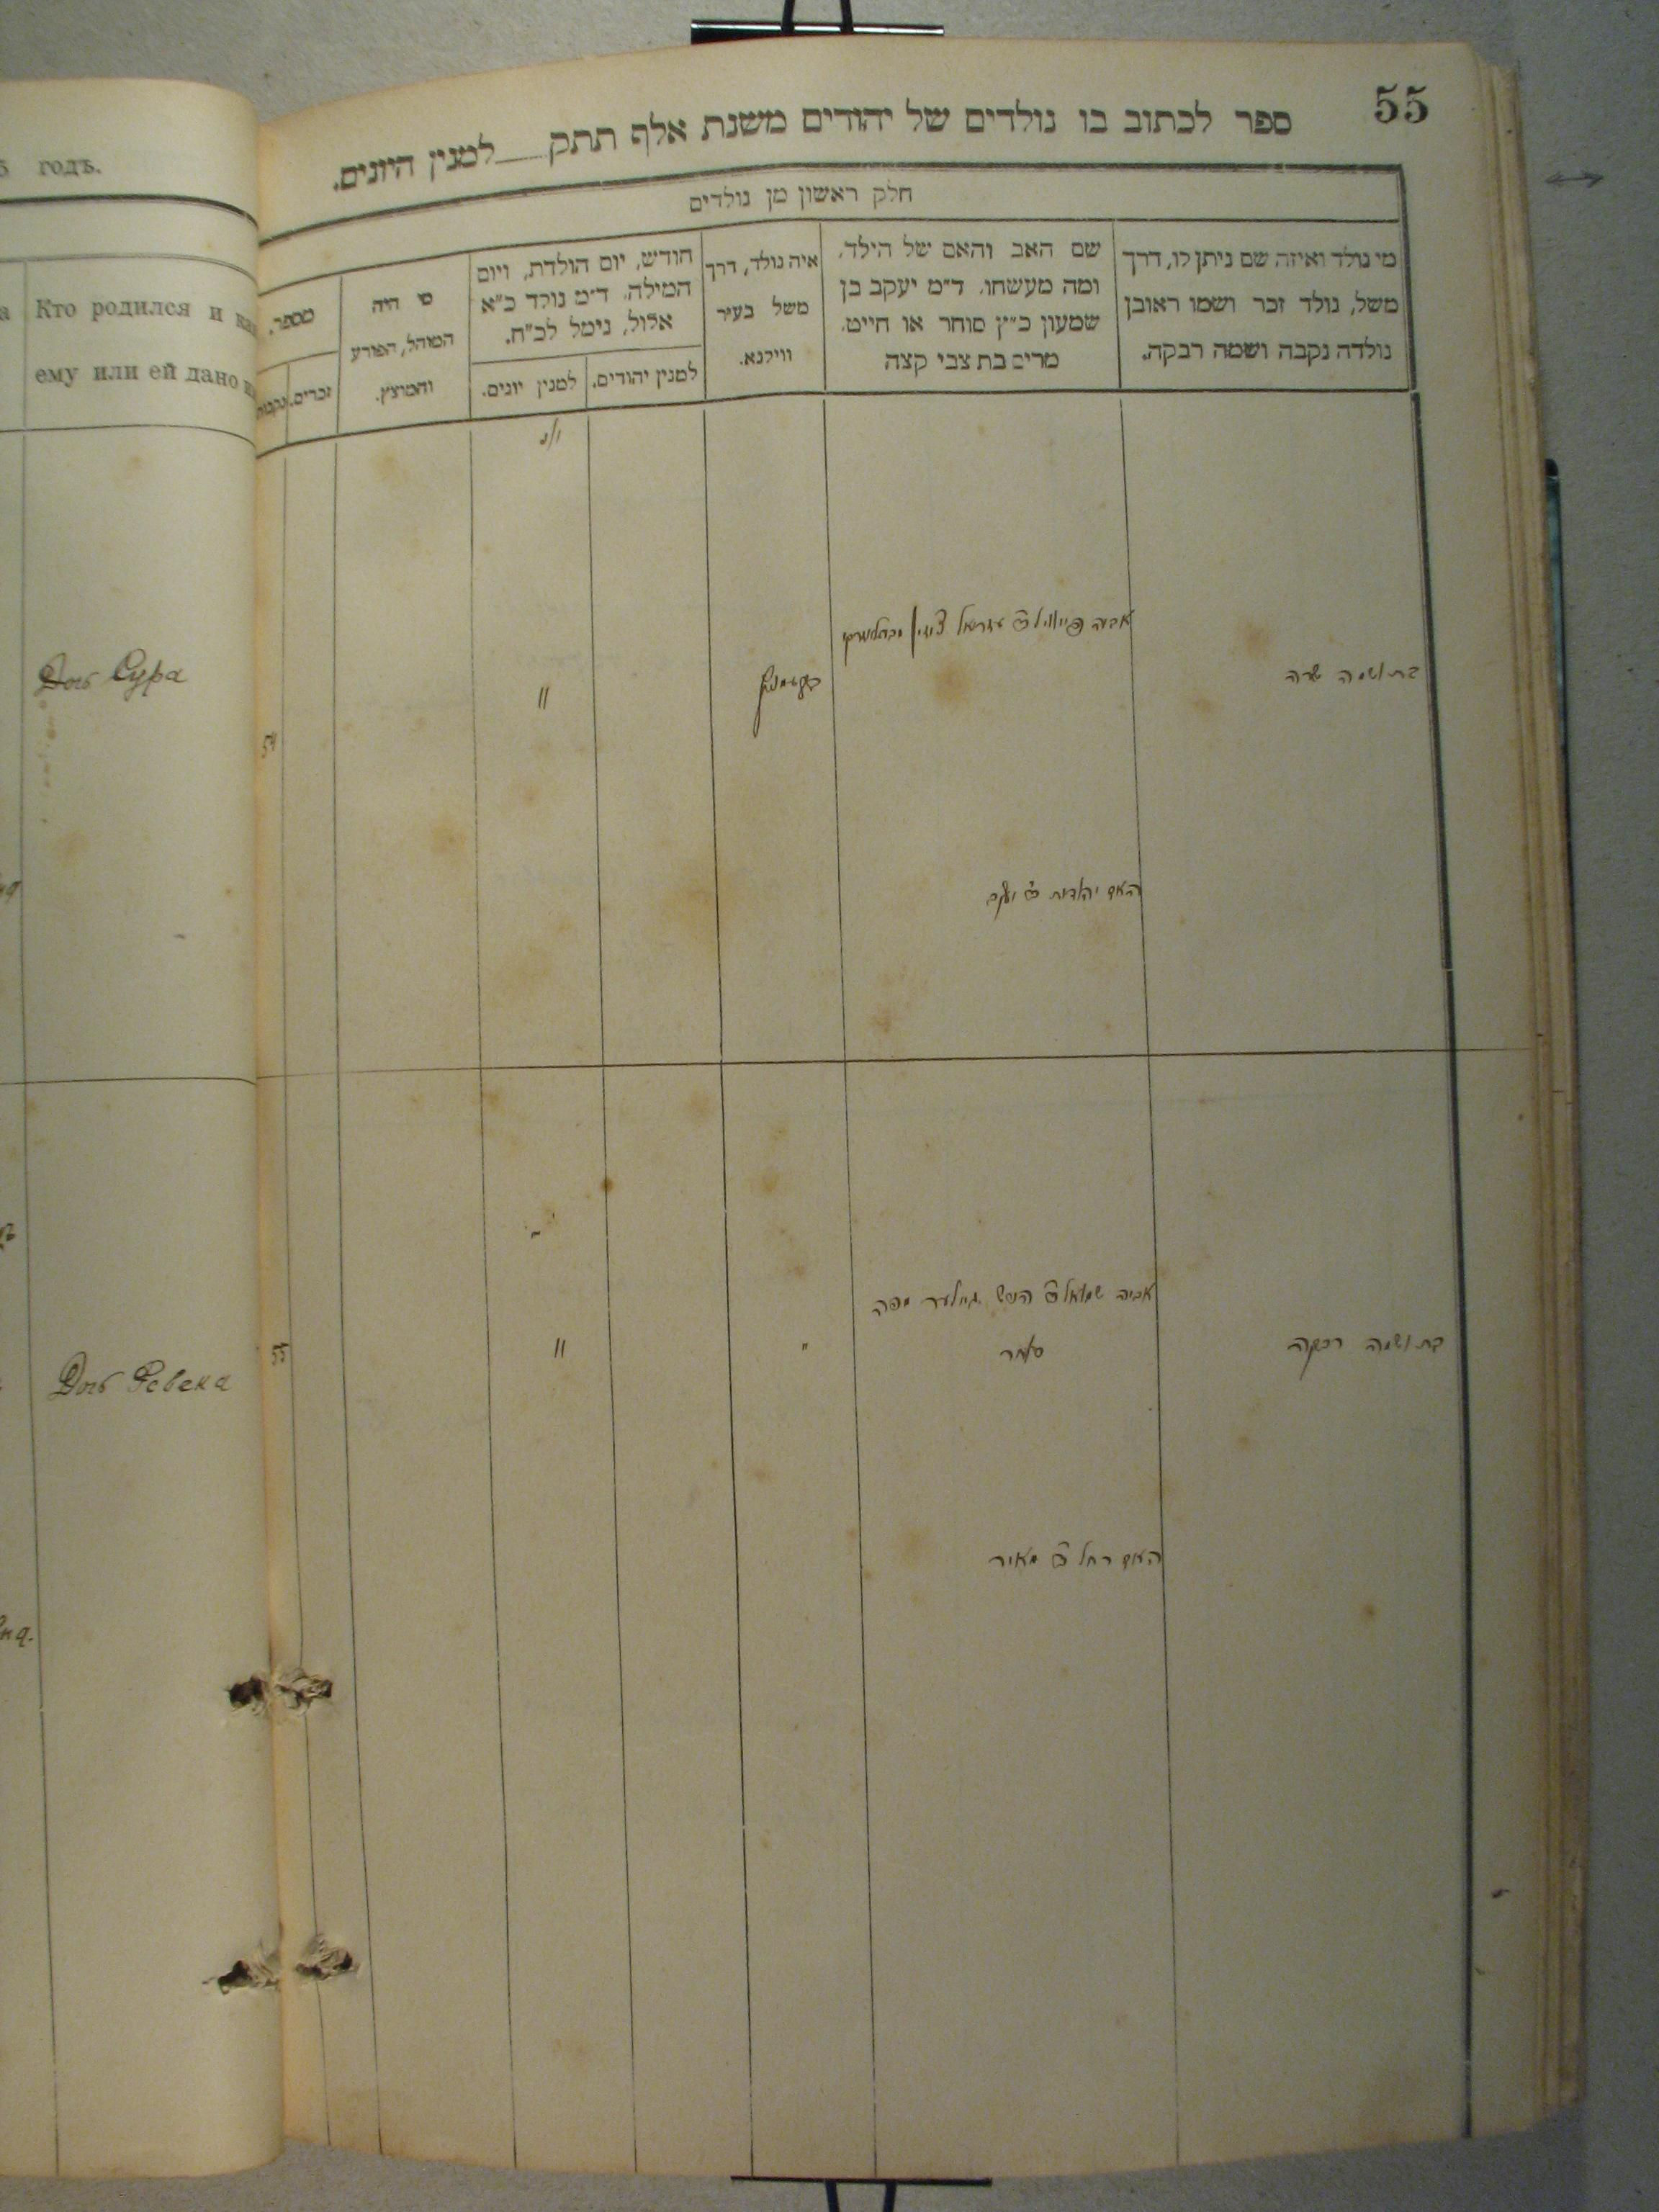 годъ.
Кто родился и
ему или ей дано
Дочь Сура
Дочь Ревека
55
ספר לכתוב בו נולדים של יהודים משנת אלף תתק למנין היונים.
חלק ראשון מן נולדים
מי נולד ואיזה שם ניתן לו, דרך
משל, נולד זכר ושמו ראובן
נולדה נקבה ושמה רבקה.
שם האב והאם של הילד,
ומה מעשהו. ד״מ יעקב בן
שמעון כ״ץ סוחר או חייט.
מרים בת צבי קצה
איה נולד, דרך
משל בעיר
ווילנא.
חודש, יום הולדת, ויום
המילה. ד״מ נולד כ״א
אלול, נימל לכ״ח.
למנין יהודים.
למנין יונים.
מי היה
המוהל, הפורע
והמוצץ.
מספר.
זכרים.
נקבות
בת ושמה שרה
אביה
״
54
האם יהודית בר יעקב
בת ושמה רבקה
אביה שמואל
סוחר
״
״
55
האם רחל בר מאיר